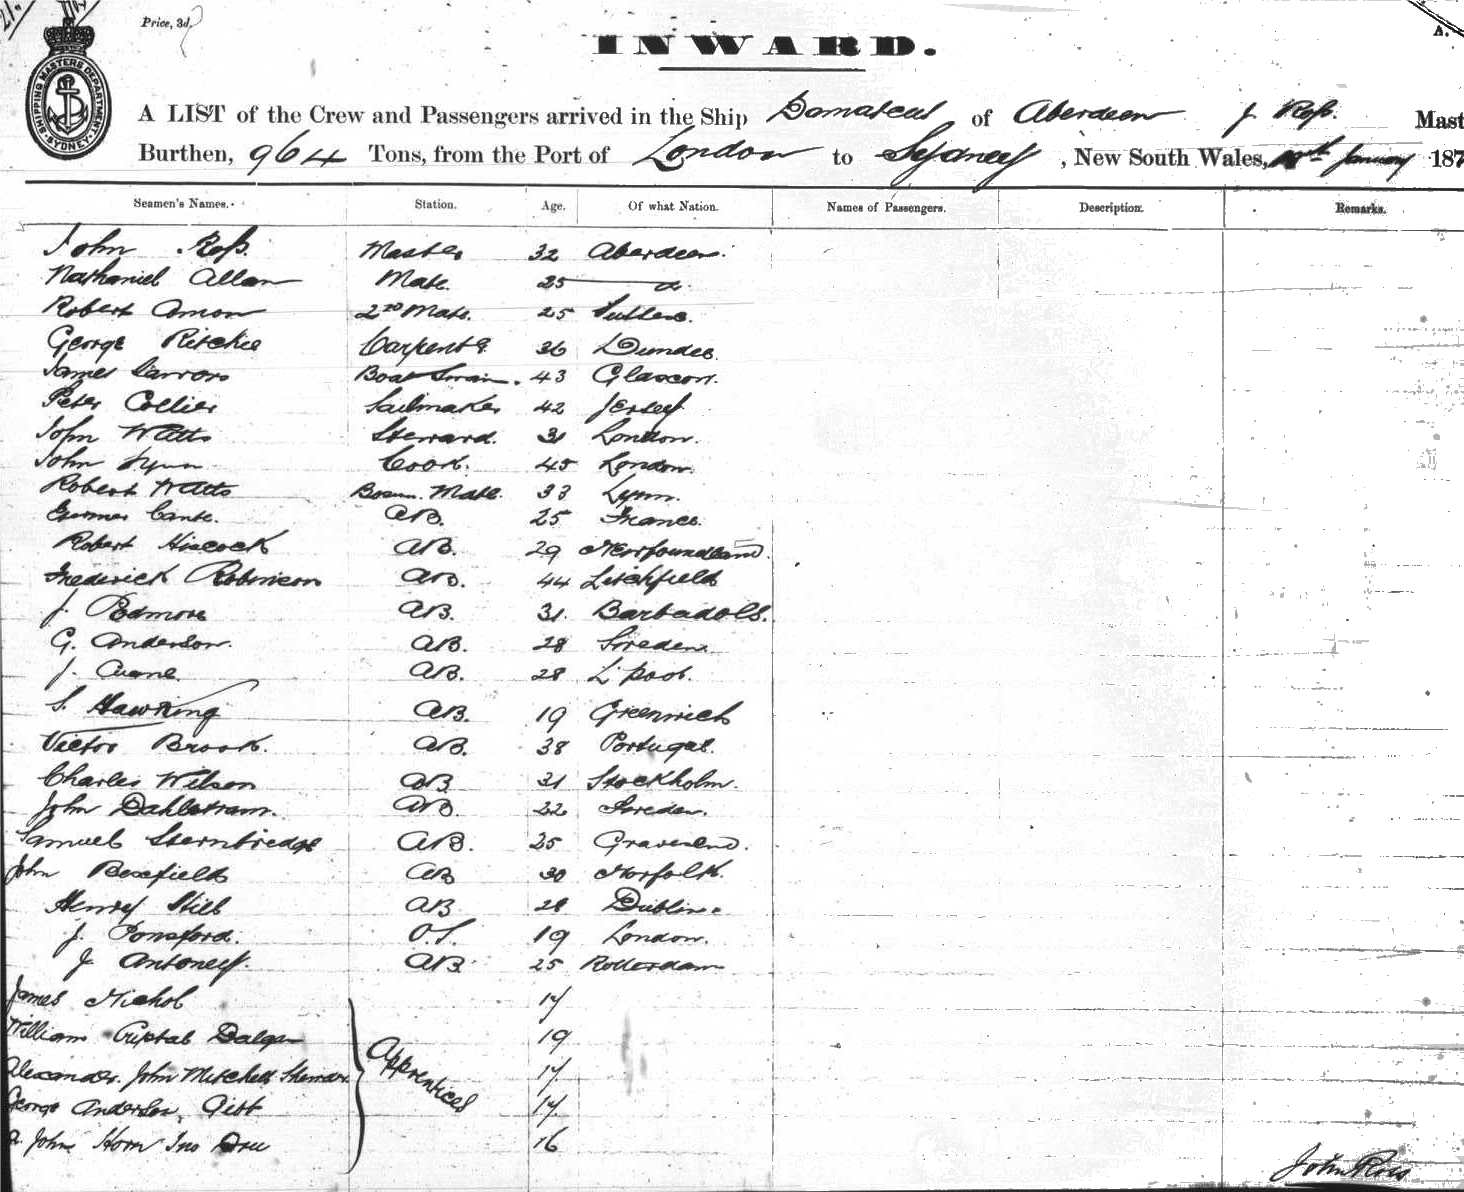 Price, 3d.
SHIPPING MASTERS DEPARTMENT SYDNEY
INWARD.
A.
A LIST of the Crew and Passengers arrived in the Ship Damascus of Aberdeen J. Ross. Mast
Burthen, 964 Tons, from the Port of London to Sydney, New South Wales, January 187
Seamen's Names. Station. Age. Of what Nation. Names of Passengers. Description. Remarks.
John Ross. Master 32 Aberdeen.
Nathaniel Allan Mate. 25 — Do.
Robert Amon 2nd Mate. 25
George Ritchie Carpentr. 36 Dundee.
James Boat Swain. 43 Glascow.
Peter Collier Sailmaker 42 Jersey.
John Watts Steward. 31 London.
John Cook. 45 London.
Robert Watts Bosun. Mate. 33 Lynn.
AB. 25 France.
Robert Hiscock AB. 29 Newfoundland.
Frederick Robinson AB. 44 Litchfield
J. Pedmore AB. 31. Barbadoes.
G. Anderson. AB. 28 Sweden.
J. AB. 28 L'pool.
S. Hawking AB. 19 Greenwich
Victor Brook. AB. 38 Portugal.
Charles Wilson AB 31 Stockholm.
John Dahlstram. AB. 22 Sweden.
Samuel Sternbridge AB. 25 Gravesend.
John Boxfield AB 30 Norfolk.
Henry Hill AB 28 Dublin.
J. Ponsford. O.S. 19 London.
J Antoney. AB. 25 Rotterdam
James Nichol 17
William Cristal 19
Apprentices
Alexander. John Mitchell 17
George Anderson, 17.
John Horn 16
John Ross